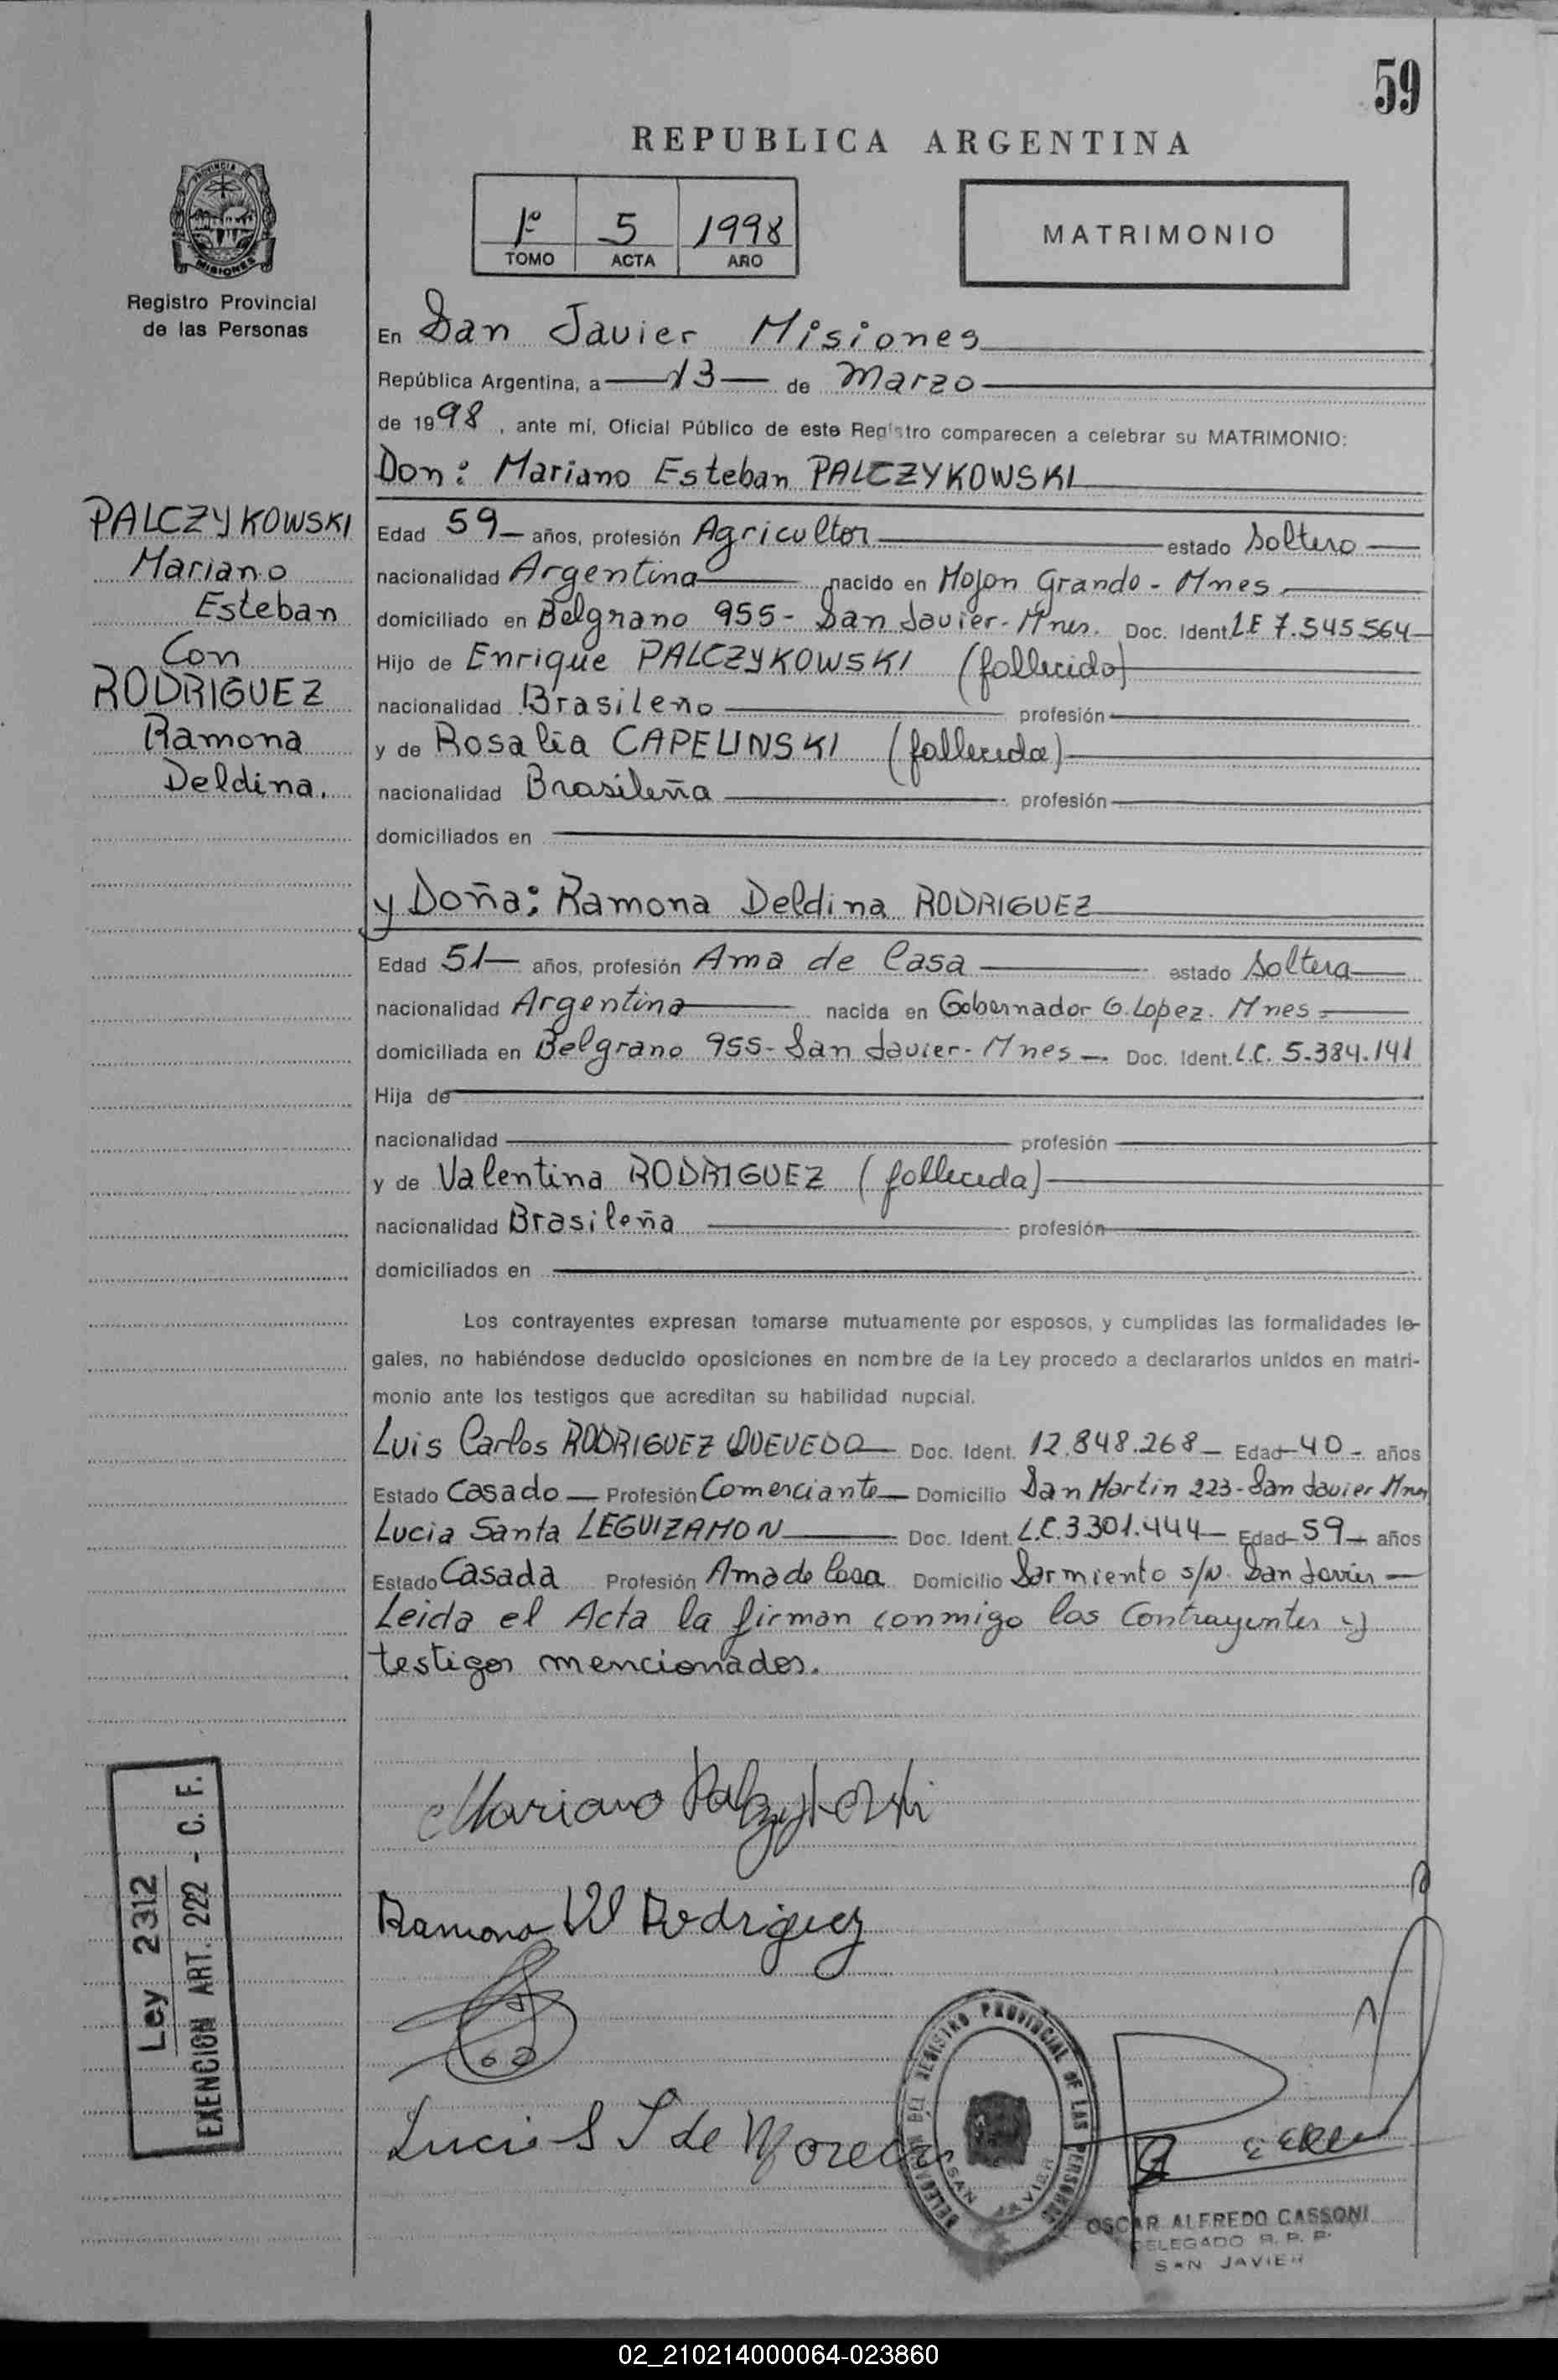 59
REPUBLICA ARGENTINA
PROVINCIA DE
MISIONES
Registro Provincial
de las Personas
1º 5 1998
TOMO ACTA AÑO
MATRIMONIO
En San Javier Misiones
República Argentina, a 13 de Marzo
de 1998, ante mí, Oficial Público de este Registro comparecen a celebrar su MATRIMONIO:
Don: Mariano Esteban PALCZYKOWSKI
PALCZYKOWSKI
Mariano
Esteban
Con
RODRIGUEZ
Ramona
Deldina.
Edad 59 años, profesión Agricultor estado Soltero
nacionalidad Argentina nacido en Mojon Grande - Mnes.
domiciliado en Belgrano 955 - San Javier - Mnes. Doc. Ident. L.E 7.545.564
Hijo de Enrique PALCZYKOWSKI (fallecido)
nacionalidad Brasileño profesión
y de Rosalia CAPELINSKI (fallecida)
nacionalidad Brasileña profesión
domiciliados en
y Doña: Ramona Deldina RODRIGUEZ
Edad 51 años, profesión Ama de Casa estado Soltera
nacionalidad Argentina nacida en Gobernador G. Lopez. Mnes.
domiciliada en Belgrano 955 - San Javier - Mnes. Doc. Ident. L.C. 5.384.141
Hija de
nacionalidad profesión
y de Valentina RODRIGUEZ (fallecida)
nacionalidad Brasileña profesión
domiciliados en
Los contrayentes expresan tomarse mutuamente por esposos, y cumplidas las formalidades le-
gales, no habiéndose deducido oposiciones en nombre de la Ley procedo a declararlos unidos en matri-
monio ante los testigos que acreditan su habilidad nupcial.
Luis Carlos RODRIGUEZ QUEVEDO Doc. Ident. 12.848.268 Edad 40 años
Estado Casado Profesión Comerciante Domicilio San Martin 223 - San Javier Mnes
Lucia Santa LEGUIZAMON Doc. Ident. L.C. 3.301.444 Edad 59 años
Estado Casada Profesión Ama de Casa Domicilio Sarmiento s/N. San Javier
Leida el Acta la firman conmigo los Contrayentes y
testigos mencionados.
Mariano Palczykowski
Ramona Del Rodriguez
Lucia S L de
Ley 2312
EXENCION ART. 222 - C. F.
DELEGACION DEL REGISTRO PROVINCIAL DE LAS PERSONAS
SAN JAVIER
OSCAR ALFREDO CASSONI
DELEGADO R. P. P.
SAN JAVIER
02_210214000064-023860